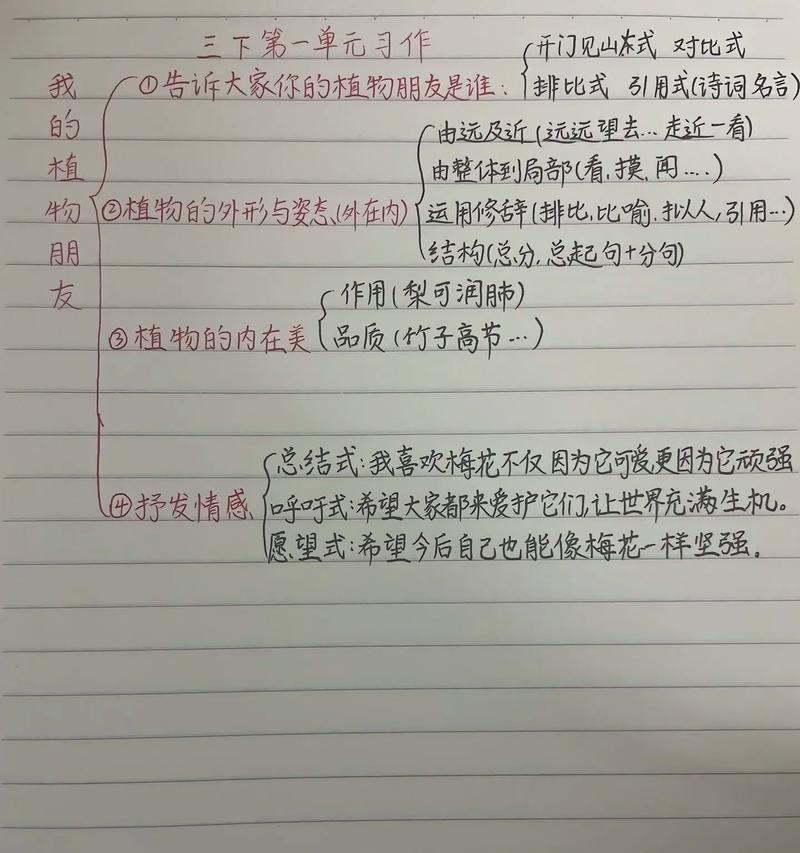 三下第一单元习作
我的植物朋友
①告诉大家你的植物朋友是谁：
开门见山式 对比式
排比式 引用式(诗词名言)
②植物的外形与姿态(外在内)
由远及近(远远望去…走近一看)
由整体到局部(看,摸,闻….)
运用修辞(排比,比喻,拟人,引用…)
结构(总分,总起句+分句)
③植物的内在美
作用(梨可润肺)
品质(竹子高节…)
④抒发情感
总结式:我喜欢梅花不仅因为它可爱,更因为它顽强
呼吁式:希望大家都来爱护它们,让世界充满生机。
愿望式:希望今后自己也能像梅花一样坚强。